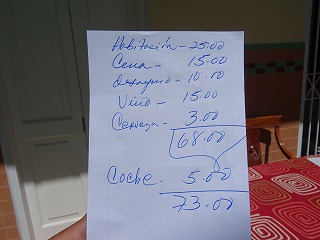 Habitación - 25.00
Cena - 15.00
Desayuno - 10.00
Vino - 15.00
Cerveza - 3.00
68.00
Coche. 5.00
73.00